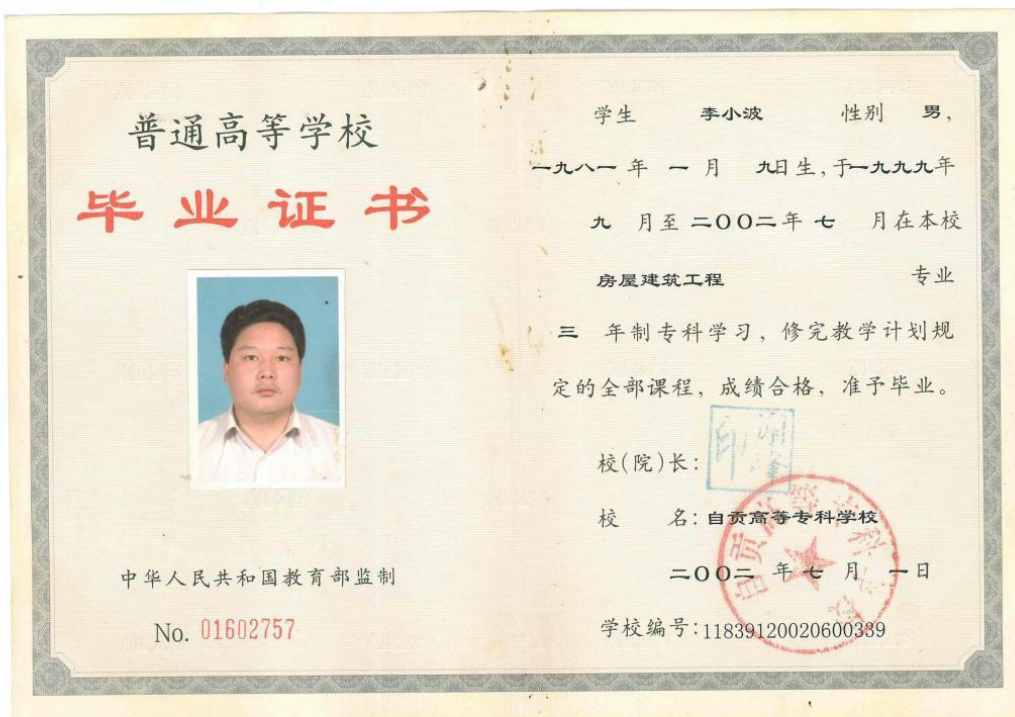 普通高等学校
毕业证书
中华人民共和国教育部监制
No. 01602757
学生 李小波 性别 男,
一九八一年 一月 九日生,于一九九九年
九 月至二〇〇二年 七 月在本校
房屋建筑工程 专业
三 年制专科学习,修完教学计划规
定的全部课程,成绩合格,准予毕业。
校(院)长:
印
校 名:自贡高等专科学校
二〇〇二年 七 月 一日
学校编号:11839120020600339
自贡高等专科学校